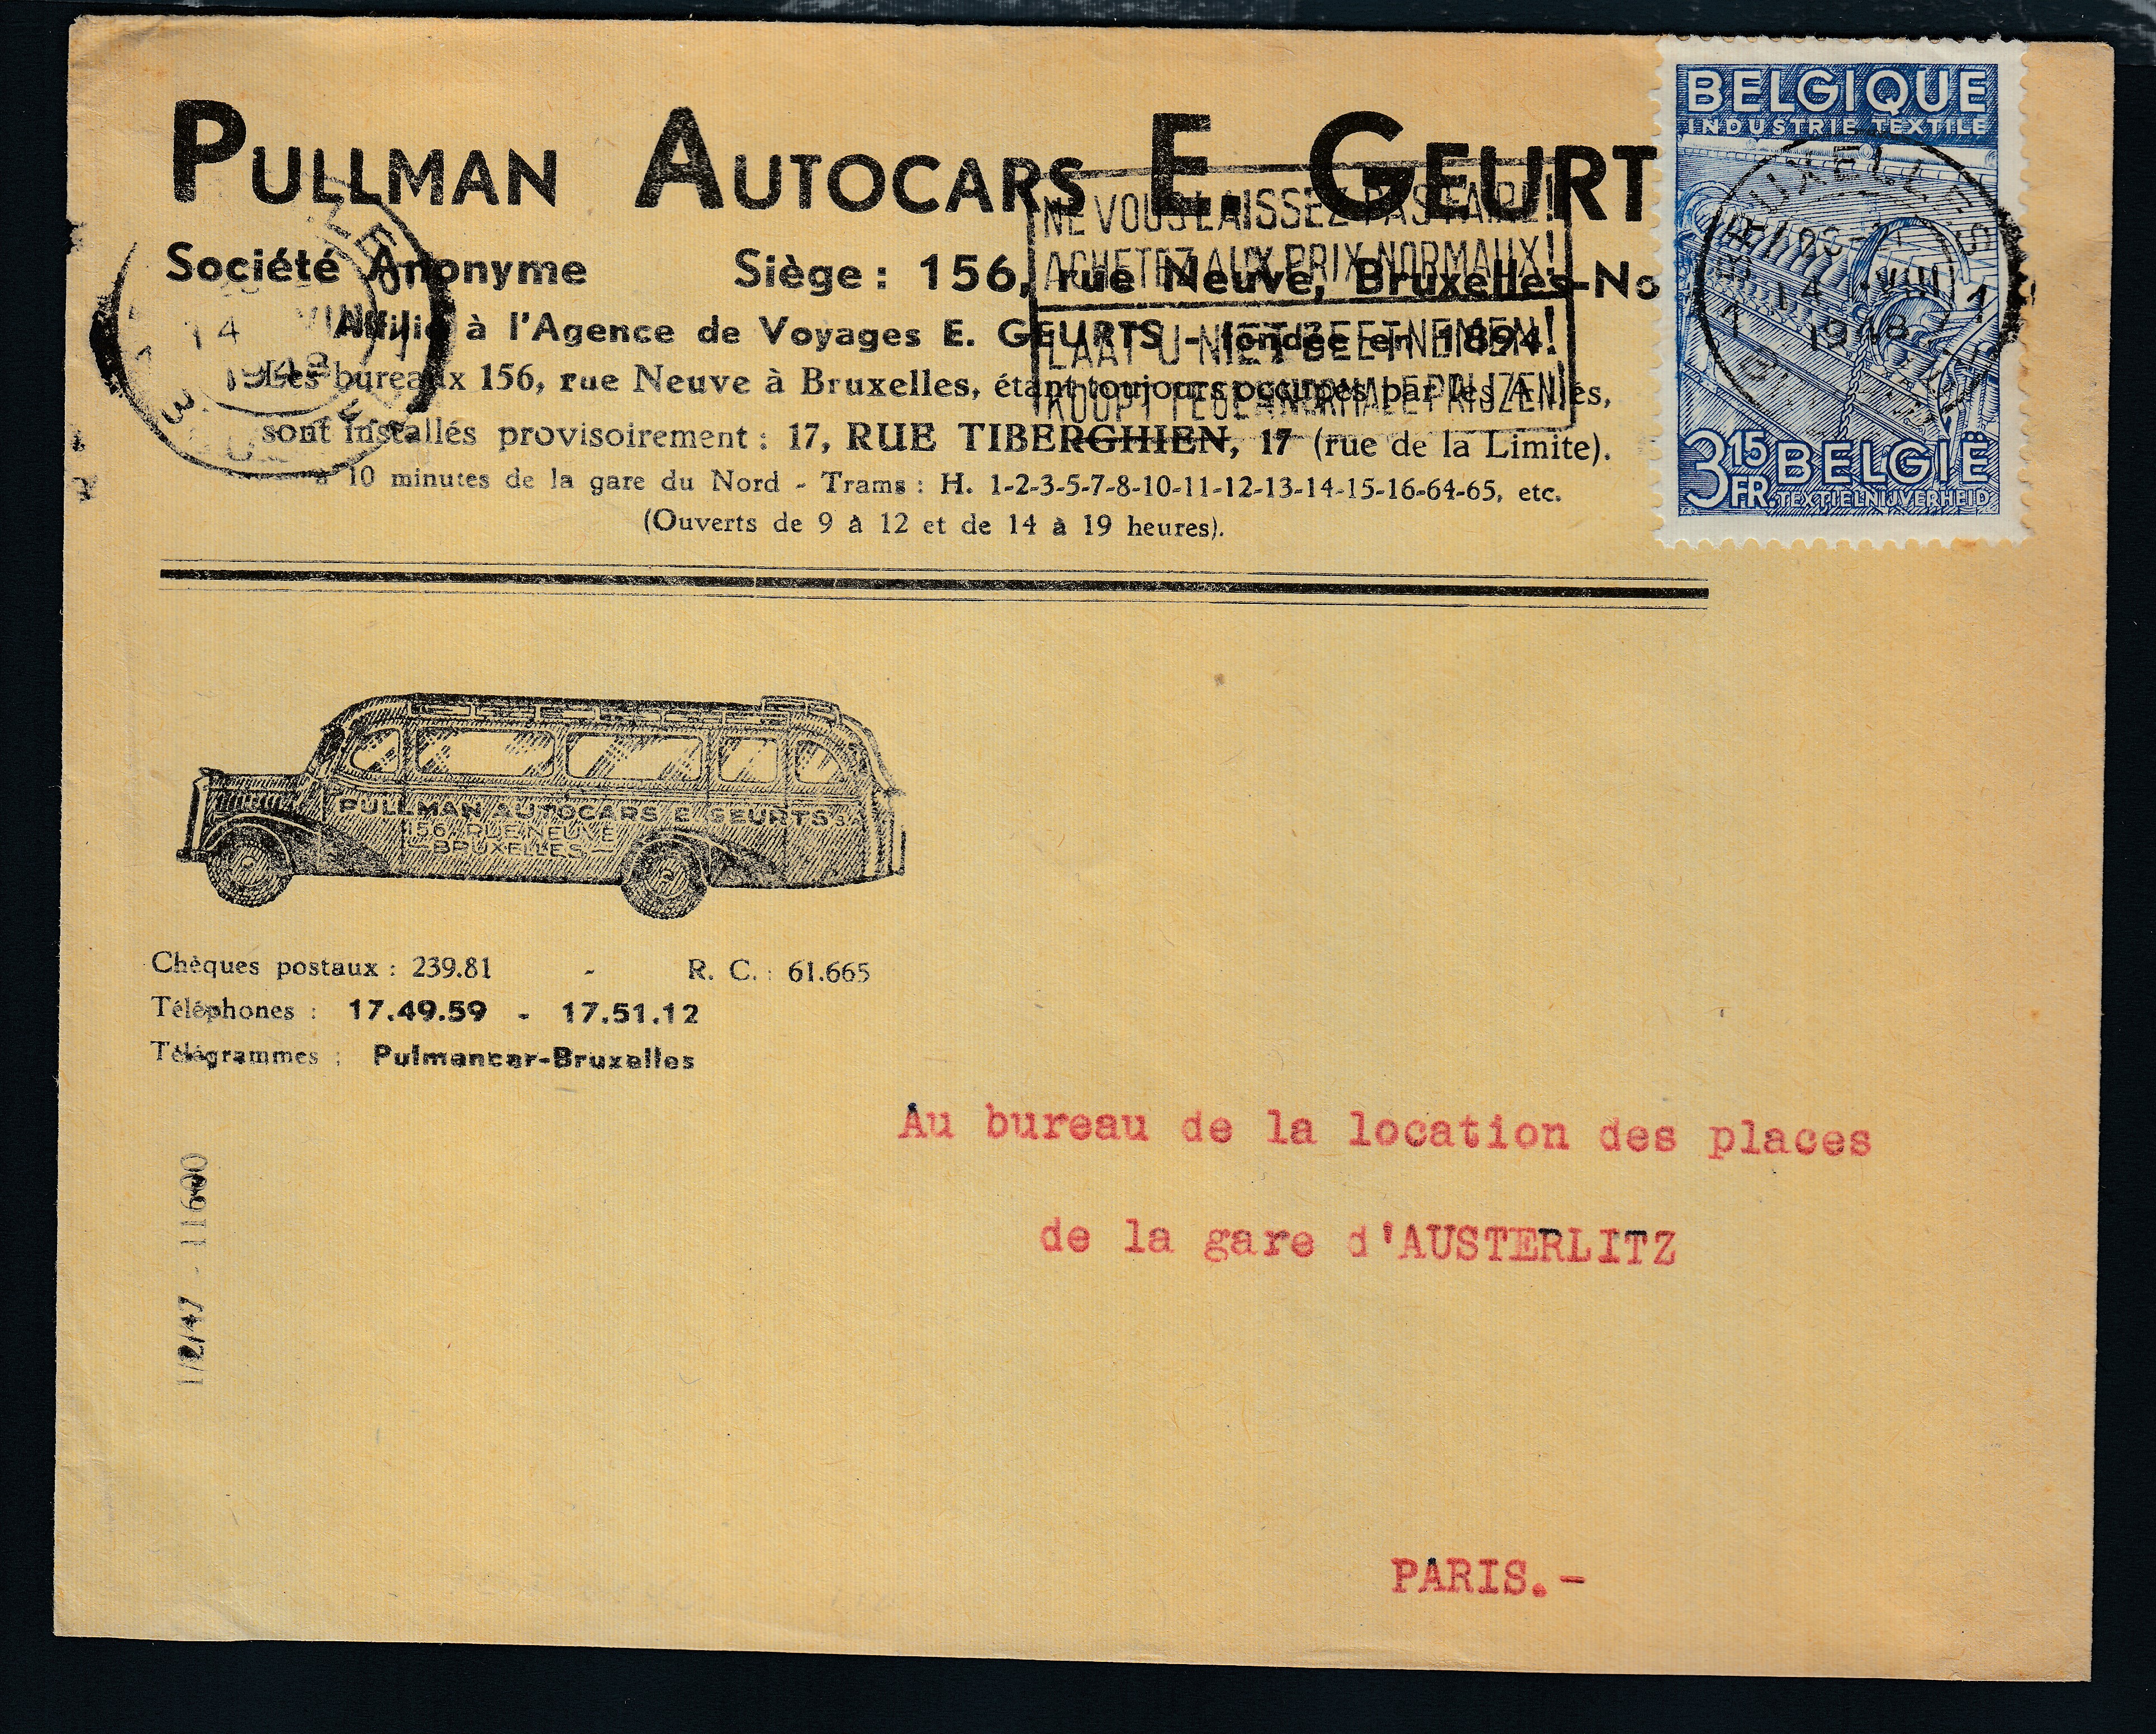 PULLMAN AUTOCARS E. GEURT
Société Anonyme Siège : 156, rue Neuve, Bruxelles-No
Affilié à l'Agence de Voyages E. GEURTS - fondée en 1894.
Les bureaux 156, rue Neuve à Bruxelles, étant toujours occupés par les Alliés,
sont installés provisoirement : 17, RUE TIBERGHIEN, 17 (rue de la Limite).
à 10 minutes de la gare du Nord - Trams : H. 1-2-3-5-7-8-10-11-12-13-14-15-16-64-65, etc.
(Ouverts de 9 à 12 et de 14 à 19 heures).
NE VOUS LAISSEZ PAS FAIRE!
ACHETEZ AUX PRIX NORMAUX!
LAAT U NIET BEETNEMEN!
KOOPT TEGEN NORMALE PRIJZEN!
14 VIII
1948
BELGIQUE
INDUSTRIE TEXTILE
BRUXELLES
14 -VIII 1
1948
3 15 FR. BELGIË
TEXTIELNIJVERHEID
PULLMAN AUTOCARS E GEURTS S.A
156, RUE NEUVE
BRUXELLES
Chèques postaux : 239.81 - R. C. : 61.665
Téléphones : 17.49.59 - 17.51.12
Télégrammes : Pulmancar-Bruxelles
1/2/47 - 11600
Au bureau de la location des places
de la gare d'AUSTERLITZ
PARIS.-